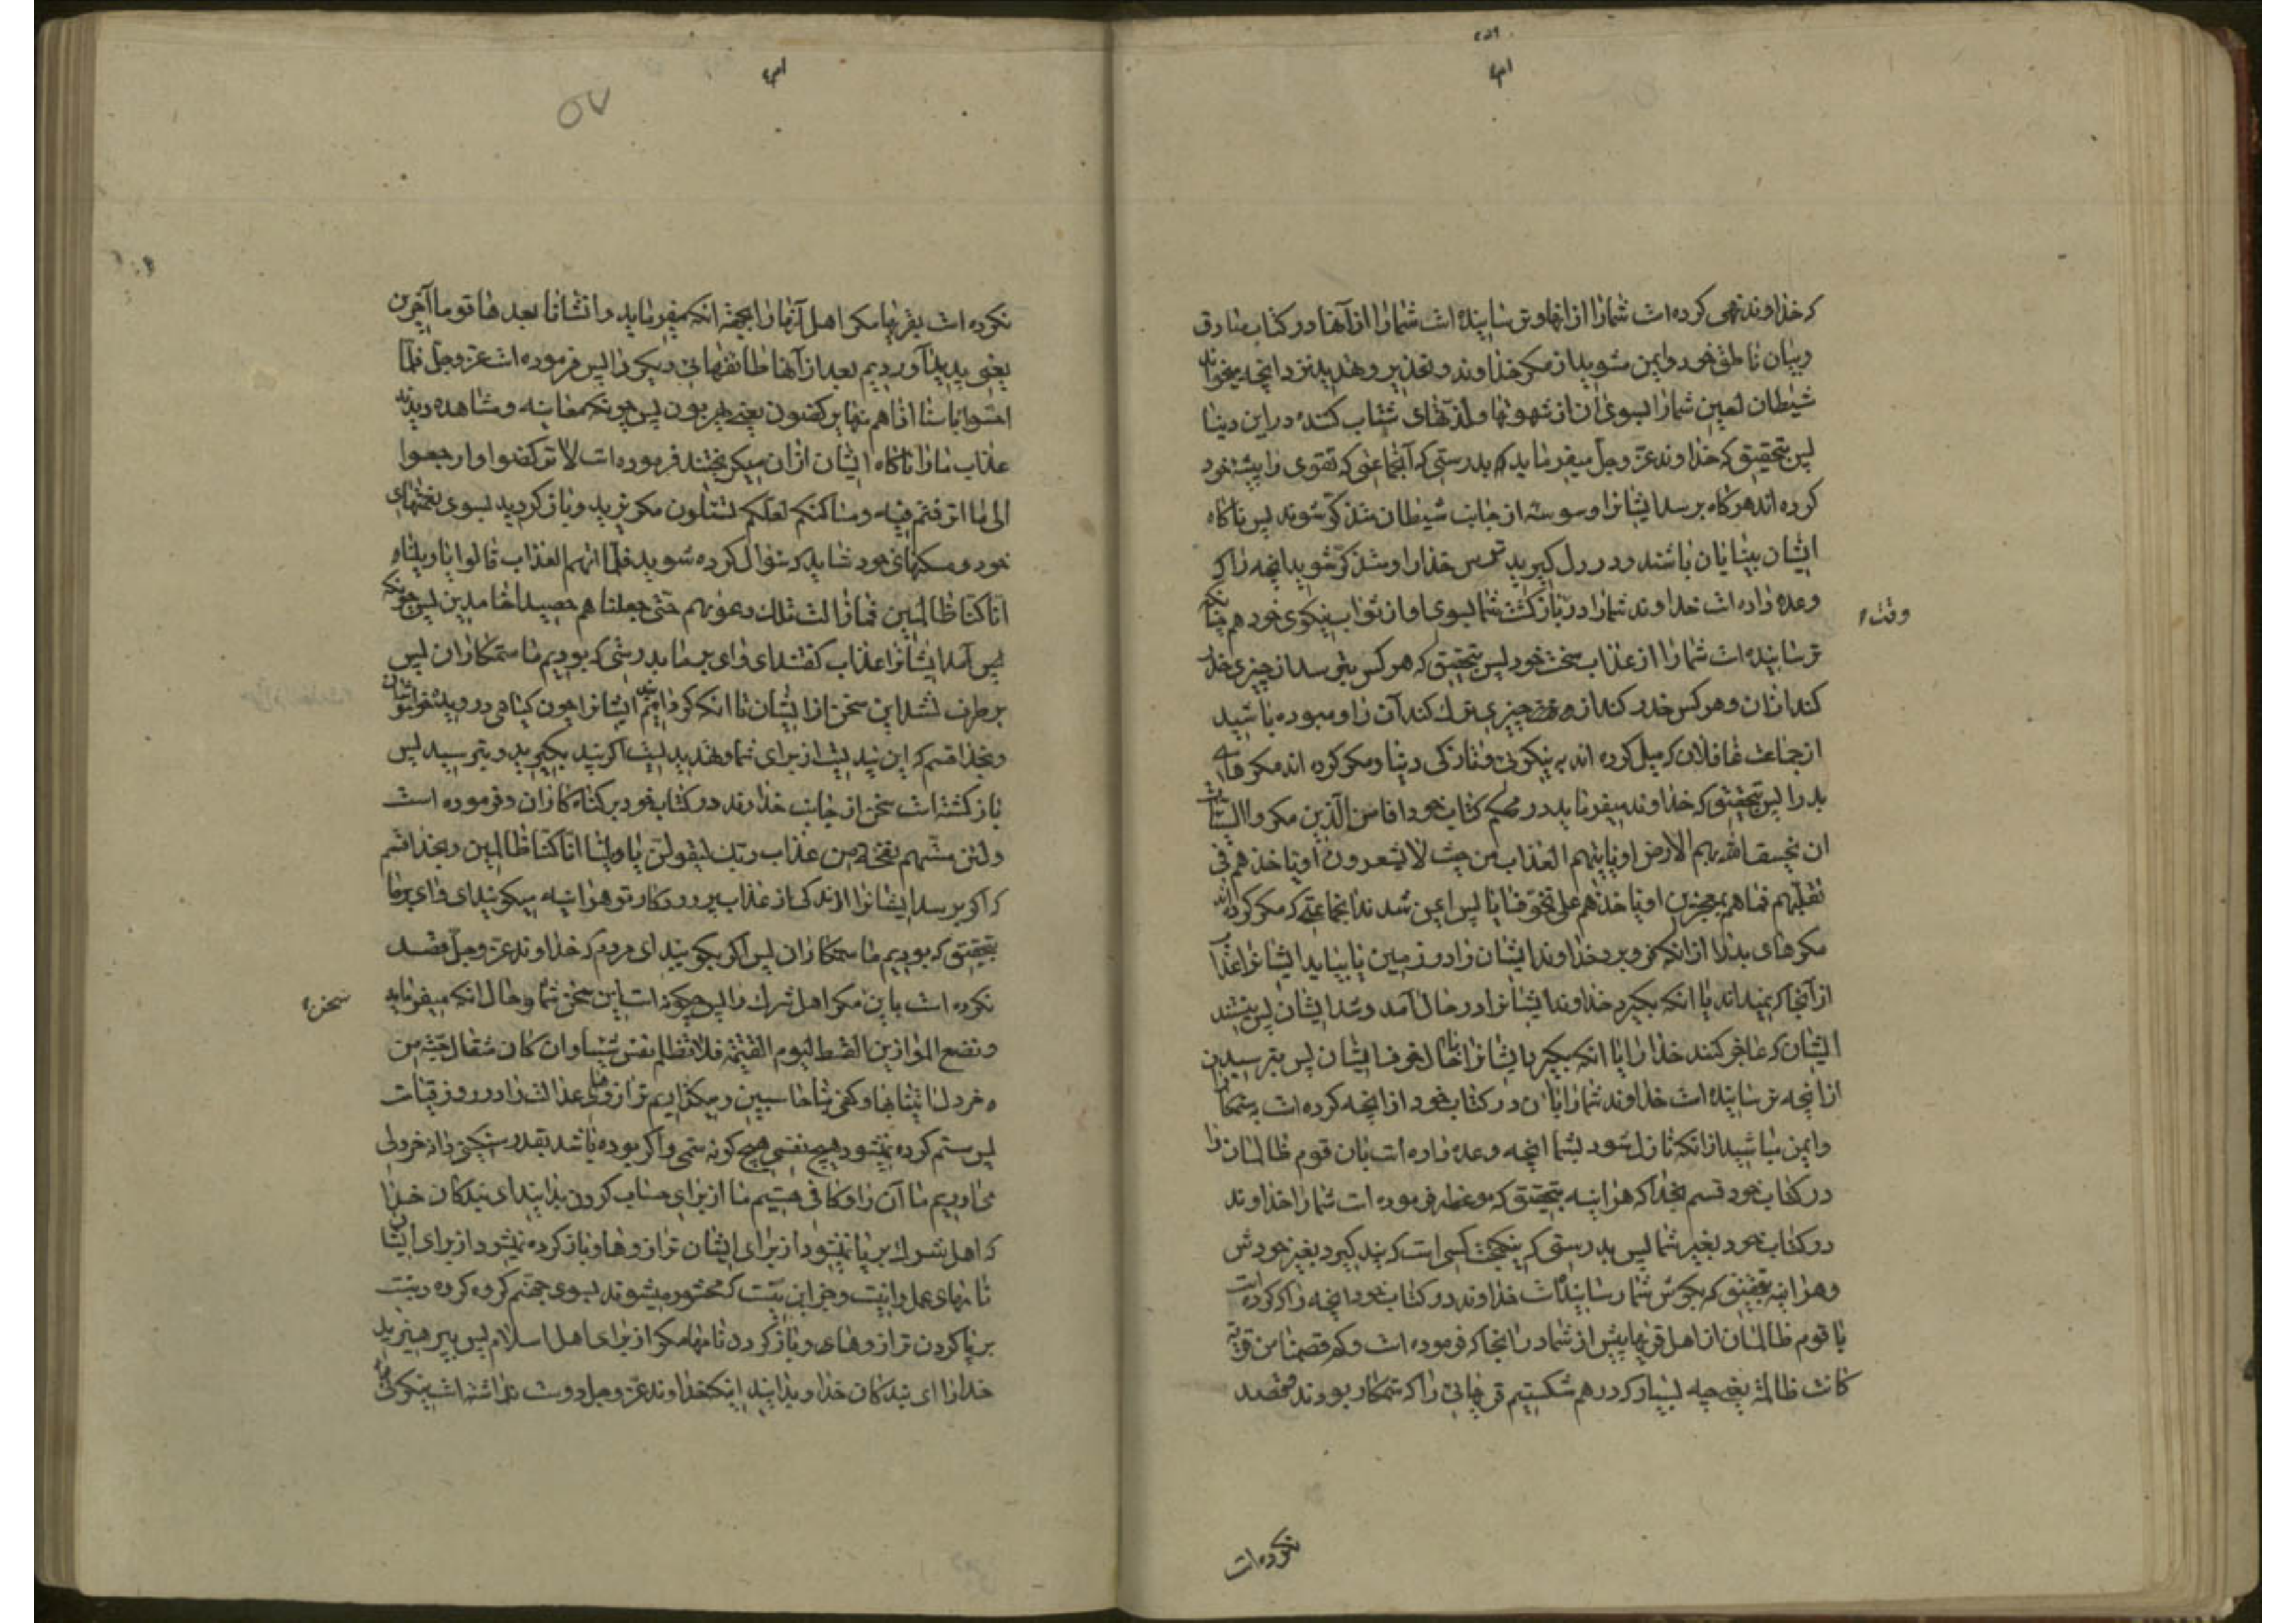 که خداوند نهی کرده است شما را از انها و ترسانیده است شما را از آنها در کتاب صادق
و بیان ناطق خود و ایمن مشوید از مکر خداوند و تحذیر و تهدید نزد انچه میخواند
شیطان لعین شما را بسوی ان از شهوتها و لذتهای شتاب کننده در این دنیا
پس بتحقیق که خداوند عز و جل میفرماید که بدرستی که آنجماعتی که تقوی را پیشه خود
کرده اند هر کاه برسد ایشانرا وسوسه از جانب شیطان متذکر شوند پس ناکاه
ایشان بینایان باشند و در دل کیرید ترس خدا را و متذکر شوید انچه را که
وعده داده است خداوند شما را در بازکشت شما بسوی او از ثواب نیکوی خود هم چنانکه
ترسانیده است شما را از عذاب سخت خود پس بتحقیق که هر کس بترسد از چیزی حذر
کند ازان و هر کس حذر کند از چیزی ترک کند آن را و مبوده باشید
از جماعت غافلان که میل کرده اند به نیکوئی و تازکی دنیا و مکر کرده اند مکرهای
بد را پس بتحقیق که خداوند میفرماید در محکم کتاب خود افامن الذین مکروا السیئات
ان یخسف الله بهم الارض او یاتیهم العذاب من حیث لا یشعرون او یاخذهم فی
تقلبهم فما هم بمعجزین او یاخذهم علی تخوف ایا پس ایمن شدند انجماعتی که مکر کرده اند
مکرهای بد را از انکه فرو برد خداوند ایشان را در زمین یا بیاید ایشانرا عذاب
از آنجا که نمیدانند یا انکه بکیرد خداوند ایشانرا در حال آمد و شد ایشان پس نیستند
ایشان که عاجز کنند خدا را یا انکه بکیرد ایشانرا بنا حال خوف ایشان پس بترسید
از انچه ترسانیده است خداوند شما را بان در کتاب خود از انچه کرده است بستمکاران
و ایمن مباشید از انکه نازل شود بشما انچه وعده داده است بان قوم ظالمان را
در کتاب خود قسم بخدا که هراینه بتحقیق که موعظه فرموده است شما را خداوند
در کتاب خود بغیر شما پس بدرستی که نیکبخت کسی است که پند کیرد بغیر خودش
و هراینه بتحقیق که بکوش شما رسانیده است خداوند در کتاب خود انچه را که کرده است
با قوم ظالمان از اهل قریها پیش از شما در انجا که فرموده است و کم قصمنا من قریة
کانت ظالمة یعنی چه بسیار که در هم شکستیم قریهائی را که ستمکار بودند و قصد
وقت
نکرده است
نکرده است بقریها مکر اهل آنها را بجهة انکه میفرماید و انشانا بعدها قوما آخرین
یعنی پدید آوردیم بعد از آنها طائفهای دیکر را پس فرموده است عز و جل فلما
احسوا باسنا اذا هم منها یرکضون یعنی یهربون پس چونکه معاینه و مشاهده دیدند
عذاب ما را ناکاه ایشان ازان میکریختند فرموده است لا ترکضوا و ارجعوا
الی ما اترفتم فیه و مساکنکم لعلکم تسئلون مکریزید و باز کردید بسوی نعمتهای
خود و مسکنهای خود شاید که سؤال کرده شوید فلما اتیهم العذاب قالوا یا ویلنا
انا کنا ظالمین فما زالت تلک دعویهم حتی جعلناهم حصیدا خامدین پس چونکه
پس آمد ایشانرا عذاب کفتند ای وای بر ما بدرستی که بودیم ما ستمکاران پس
برطرف نشد این سخن از ایشان تا انکه کردانیدیم ایشانرا چون کیاهی درویده
و بخدا قسم که این پندیست از برای شما و تهدیدیست اکر پند بکیرید و بترسید پس
بازکشته است سخن از جانب خداوند در کتاب خود بر کناه کاران و فرموده است
و لئن مستهم نفحة من عذاب ربک لیقولن یا ویلنا انا کنا ظالمین و بخدا قسم
که اکر برسد ایشانرا اندکی از عذاب پروردکار تو هراینه میکویند ای وای بر ما
بتحقیق که بودیم ما ستمکاران پس اکر بکویید ای مردم که خداوند عز و جل قصد
نکرده است باین مکر اهل شرک را پس چکونه است این سخن شما و حال انکه میفرماید
و نضع الموازین القسط لیوم القیمة فلا تظلم نفس شیئا و ان کان مثقال حبة من
خردل اتینا بها و کفی بنا حاسبین و میکذاریم ترازوهای عدالت را در روز قیامت
پس ستم کرده نمیشود هیچ نفسی هیچ کونه ستمی و اکر بوده باشد بقدر سنکینی دانه خردلی
می آوریم ما آن را و کافی هستیم ما از برای حساب کردن بدانید ای بندکان خدا
که اهل شرک بر پا نمیشود از برای ایشان ترازوها و باز کرده نمیشود از برای ایشان
نامهای عمل و این نیست و جز این نیست که محشور میشوند بسوی جهنم کروه کروه و نیست
بر پا کردن ترازوهای و باز کردن نامها مکر از برای اهل اسلام پس بپرهیزید
خدا را ای بندکان خدا و بدانید اینکه خداوند عز و جل دوست نداشته است نیکوئی
سخن